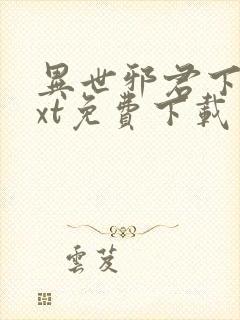 異世邪君下
xt免費下載
雲芨